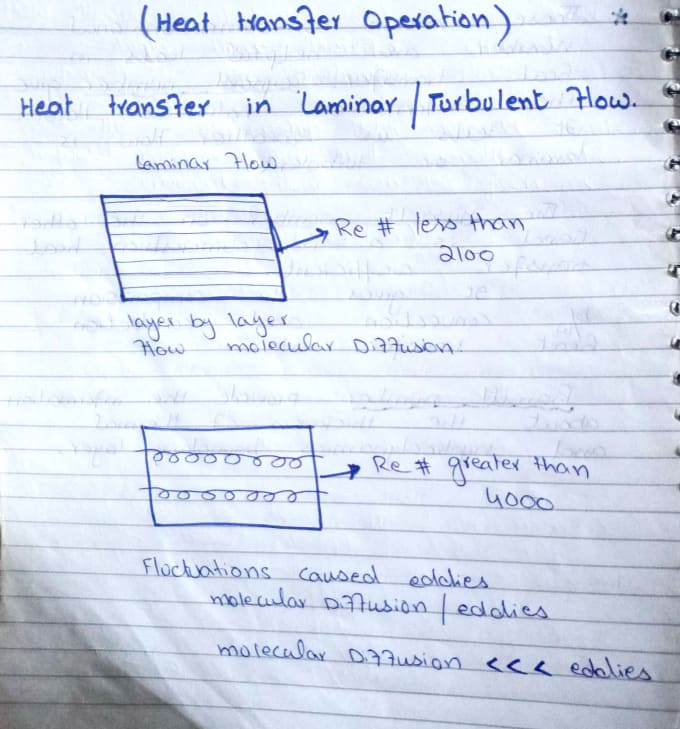 (Heat transfer Operation) *
Heat transfer in Laminar / Turbulent Flow.
Laminar Flow
Re # less than
2100
layer by layer
Flow molecular Diffusion.
Re # greater than
4000
Fluctuations caused eddies
molecular Diffusion / eddies
molecular Diffusion <<< eddies